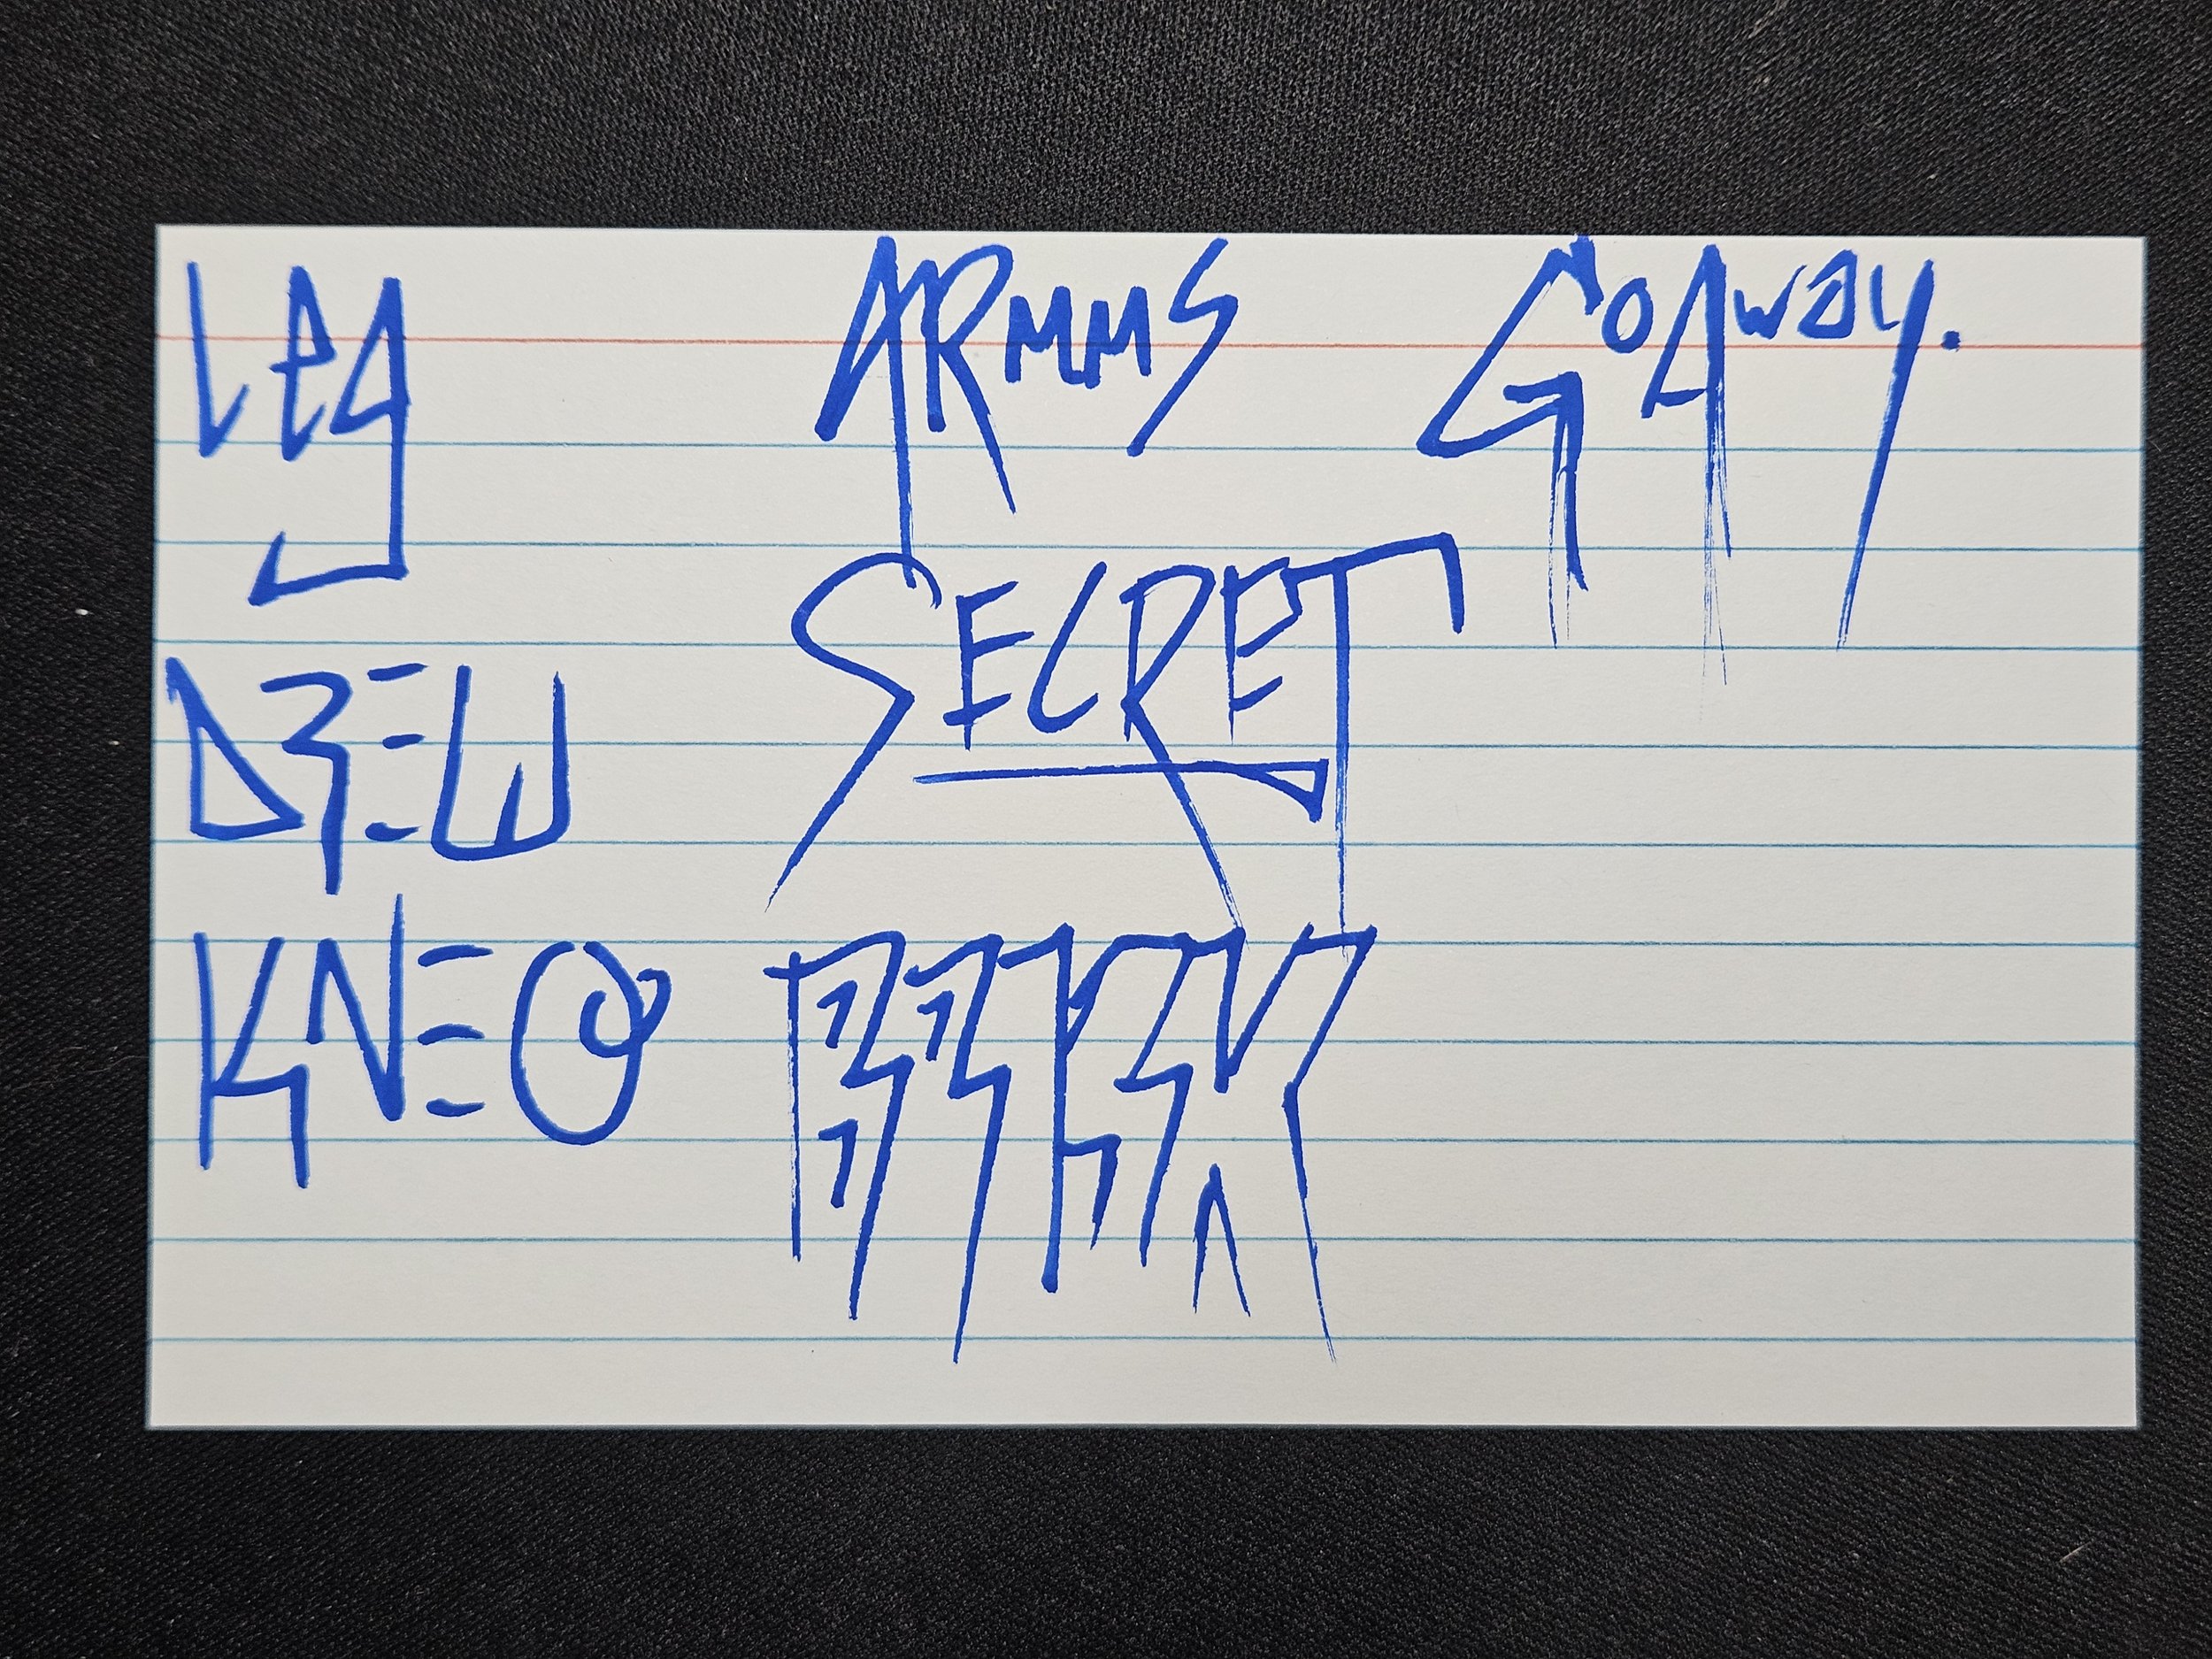 Leg ARMMS GoAway.
DREW SECRET
KNEO